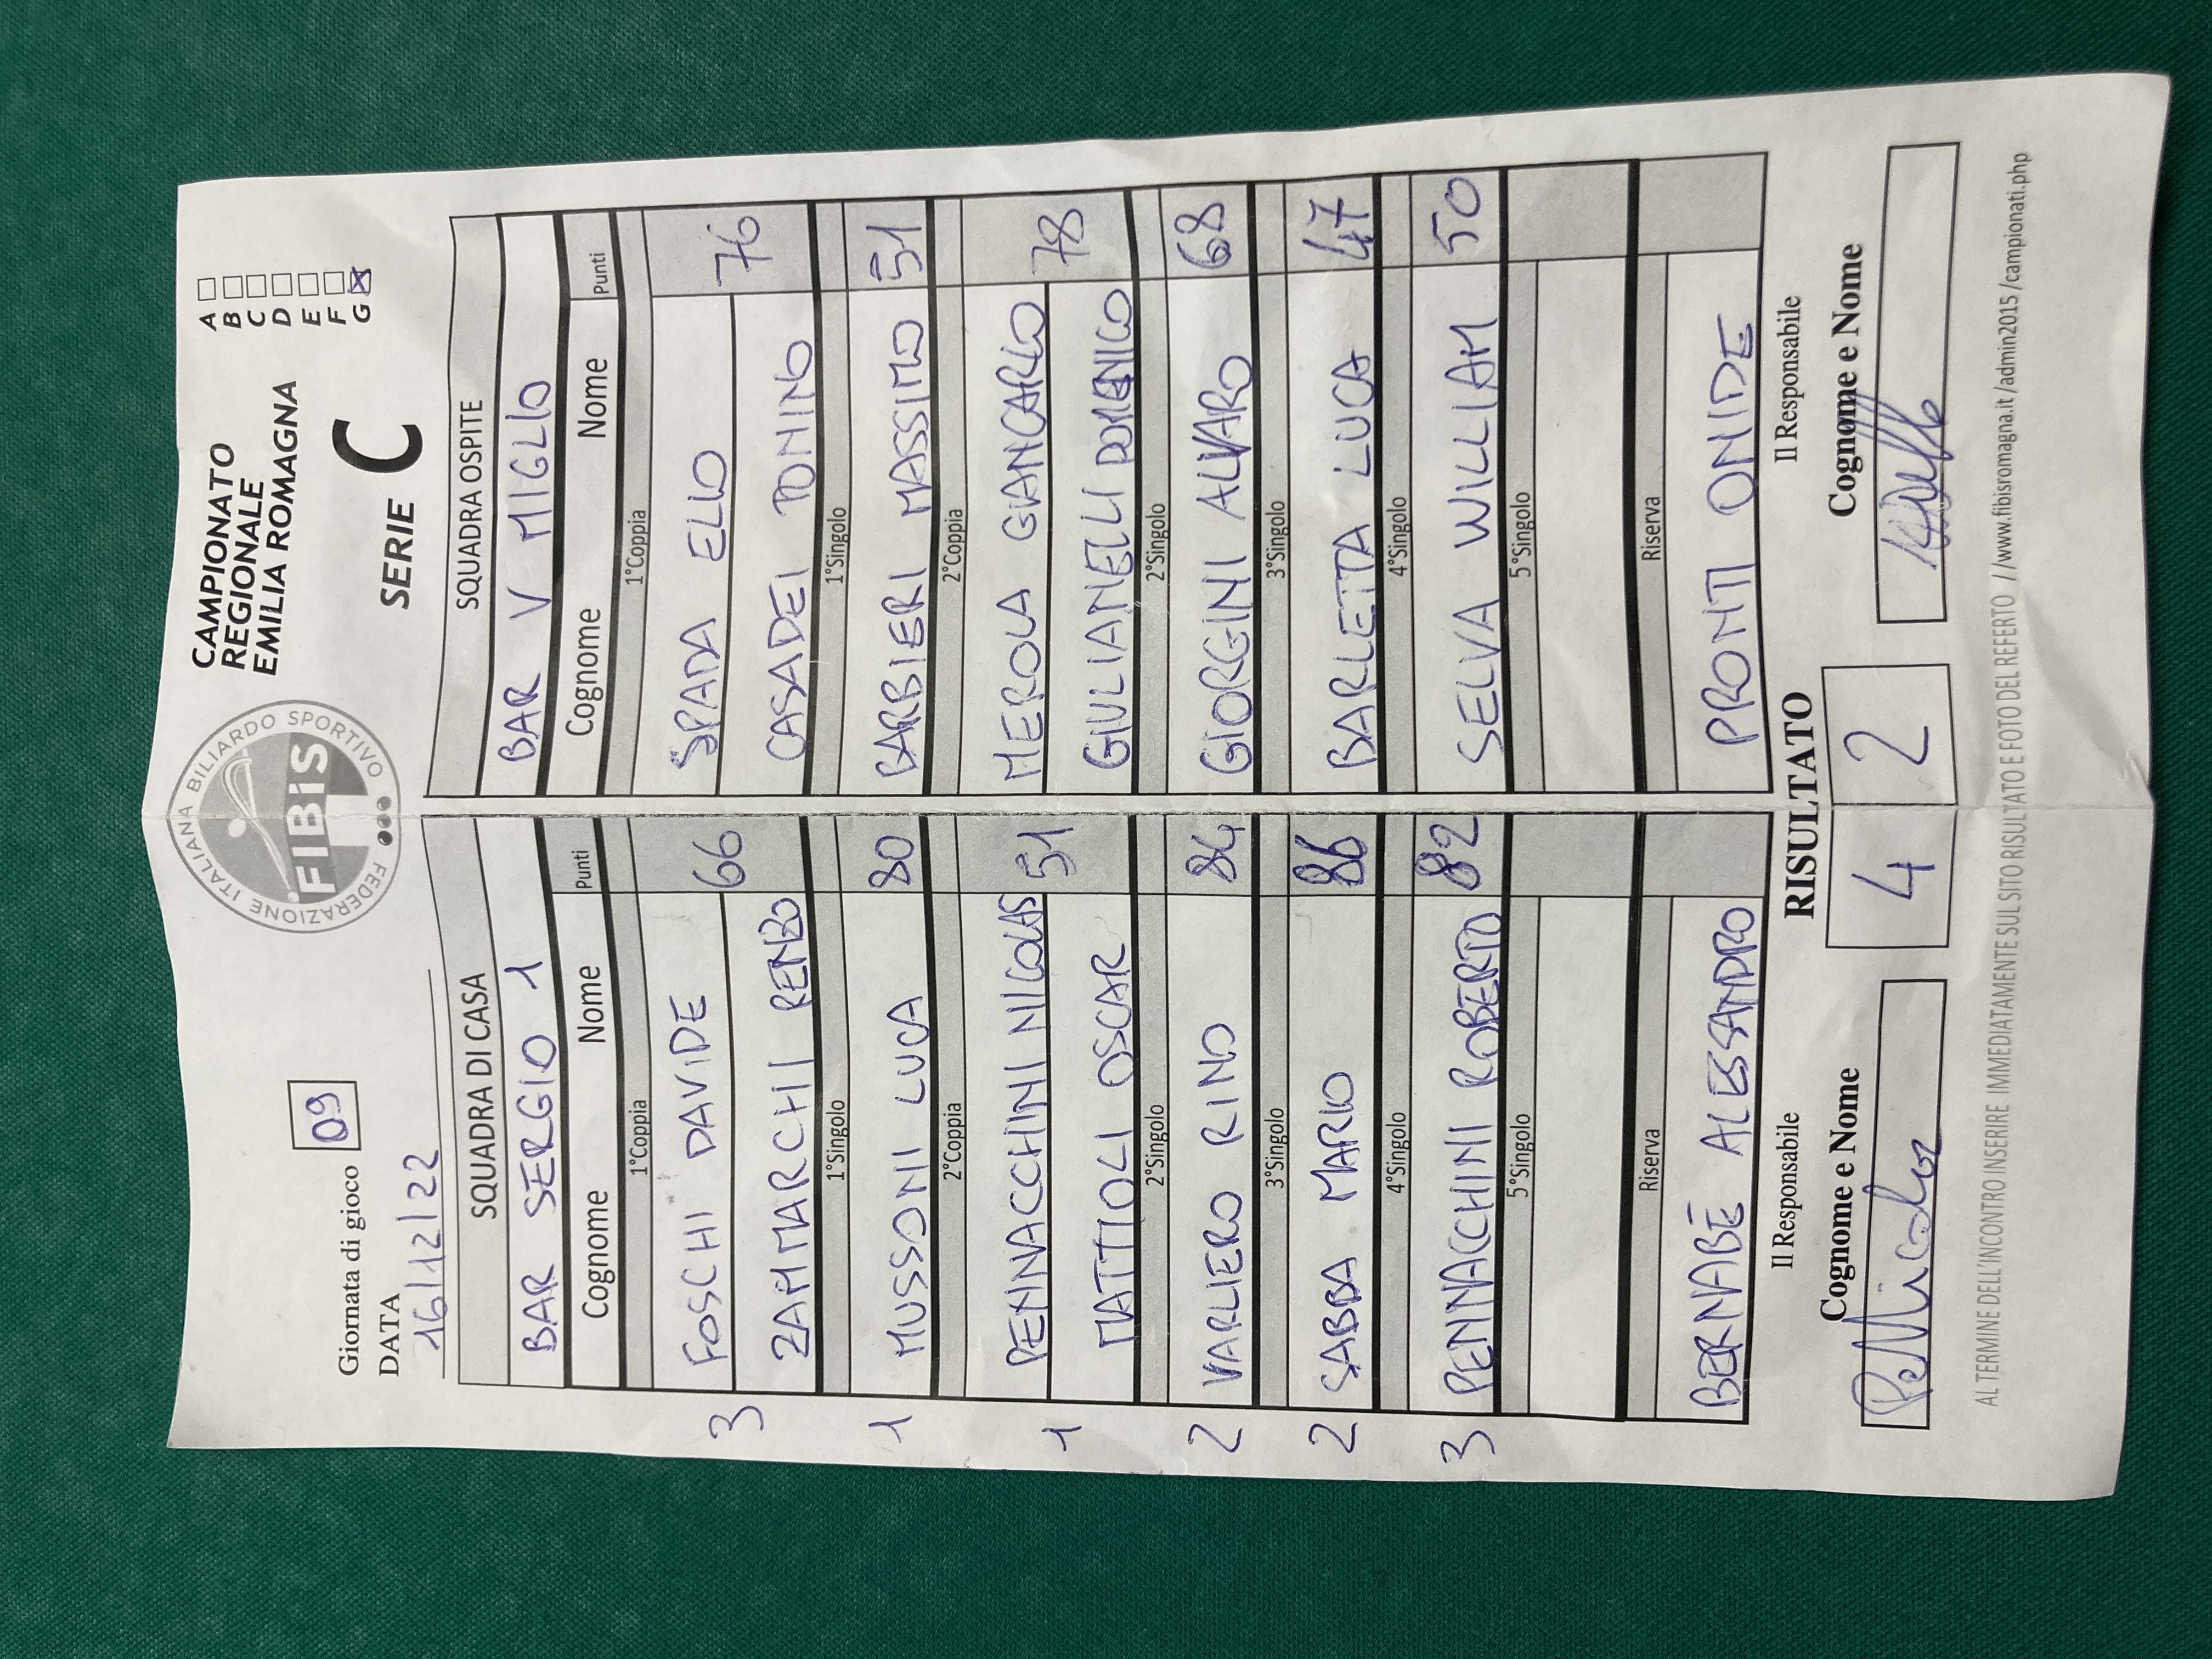 Giornata di gioco 09
DATA
16/12/22
FEDERAZIONE ITALIANA BILIARDO SPORTIVO
FIBiS
CAMPIONATO
REGIONALE
EMILIA ROMAGNA
SERIE C
A
B
C
D
E
F
G X
SQUADRA DI CASA
BAR SERGIO 1
Cognome Nome Punti
1°Coppia
3 FOSCHI DAVIDE 66
ZAMMARCHI RENZO
1°Singolo
1 MUSSONI LUCA 80
2°Coppia
1 PENNACCHINI NICOLAS 51
MATTIOLI OSCAR
2°Singolo
2 VARLIERO RINO 84
3°Singolo
2 SABBA MARIO 86
4°Singolo
3 PENNACCHINI ROBERTO 82
5°Singolo
Riserva
BERNABÈ ALESSANDRO
SQUADRA OSPITE
BAR V MIGLIO
Cognome Nome Punti
1°Coppia
SPADA ELIO 76
CASADEI TONINO
1°Singolo
BARBIERI MASSIMO 51
2°Coppia
MEROLA GIANCARLO 78
GIULIANELLI DOMENICO
2°Singolo
GIORGINI ALVARO 68
3°Singolo
BARLETTA LUCA 47
4°Singolo
SELVA WILLIAM 50
5°Singolo
Riserva
PRONTI ONIDE
Il Responsabile RISULTATO Il Responsabile
Cognome e Nome 4 2 Cognome e Nome
AL TERMINE DELL'INCONTRO INSERIRE IMMEDIATAMENTE SUL SITO RISULTATO E FOTO DEL REFERTO //www.fibisromagna.it/admin2015/campionati.php